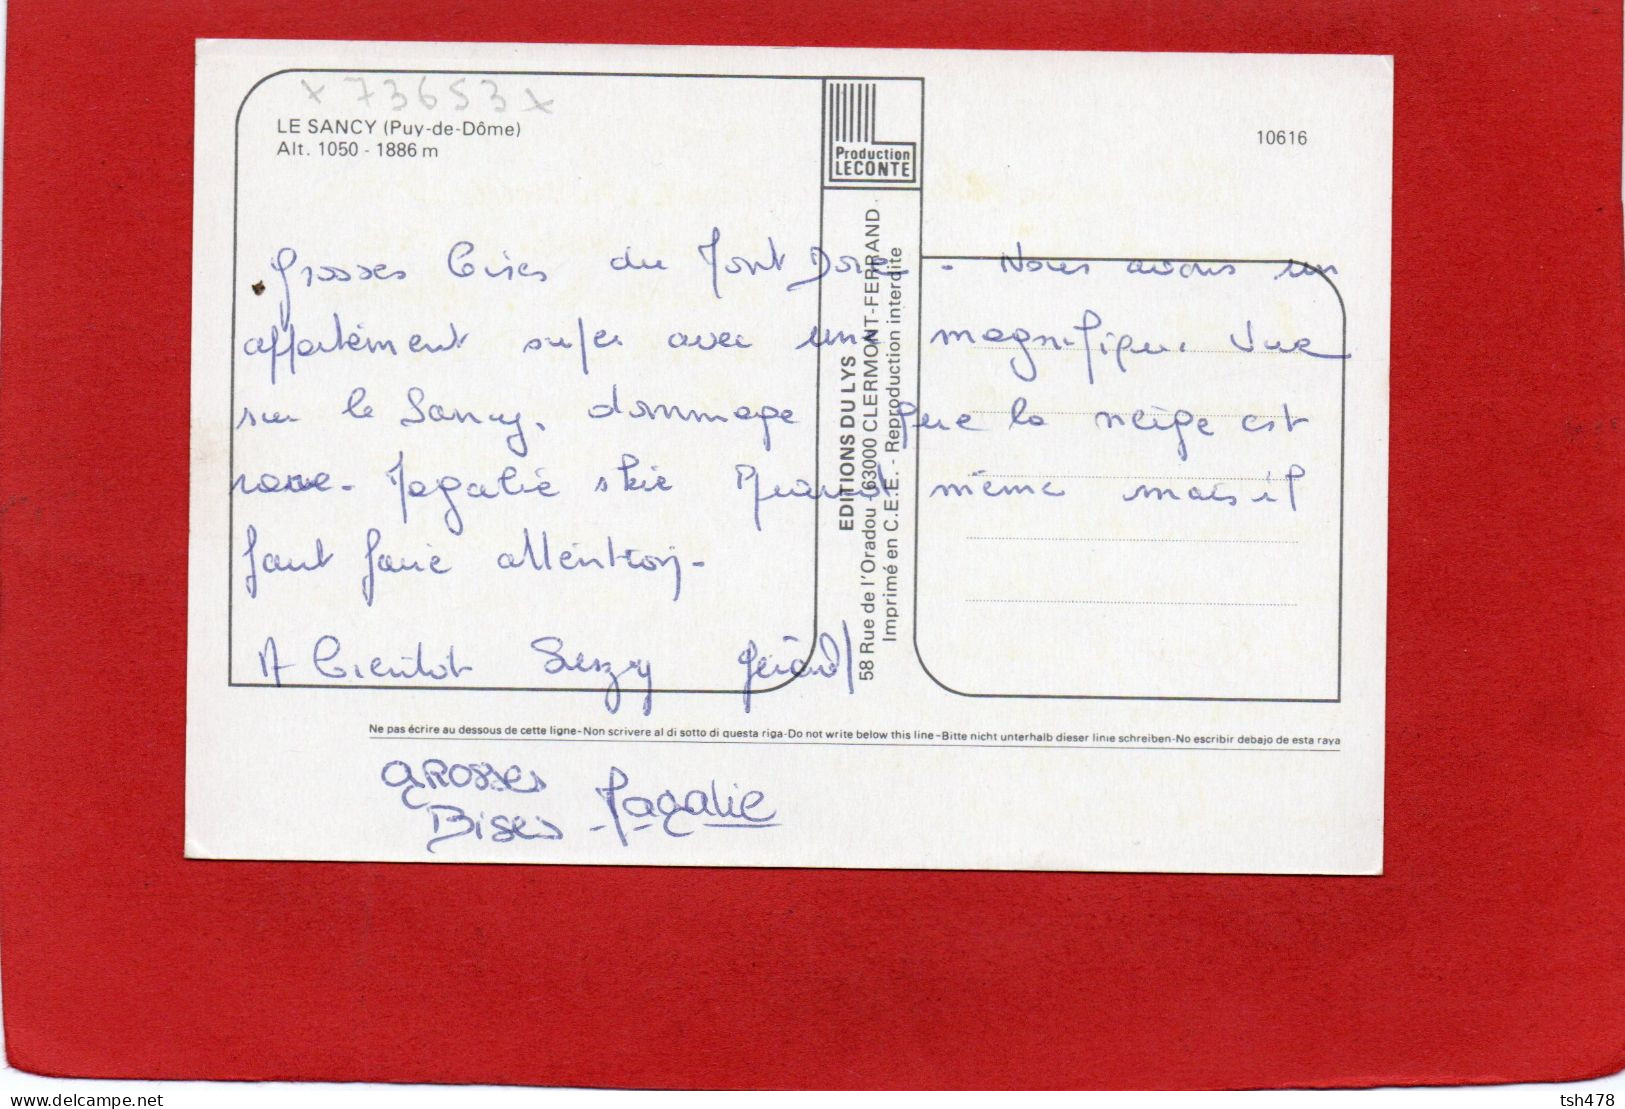 x 73653 x
LE SANCY (Puy-de-Dôme)
Alt. 1050 - 1886 m
Production
LECONTE
10616
Grosses bises du Mont Dore - Nous avons un
appartement super avec une magnifique vue
sur le Sancy, dommage que la neige est
rare - Magalie skie quand même mais il
faut faire attention -
A bientôt Suzy Gérard
EDITIONS DU LYS
58 Rue de l'Oradou - 63000 CLERMONT-FERRAND
Imprimé en C.E.E. - Reproduction interdite
Ne pas écrire au dessous de cette ligne-Non scrivere al di sotto di questa riga-Do not write below this line-Bitte nicht unterhalb dieser linie schreiben-No escribir debajo de esta raya
GROSSES
BISES - Magalie
www.delcampe.net
tsh478